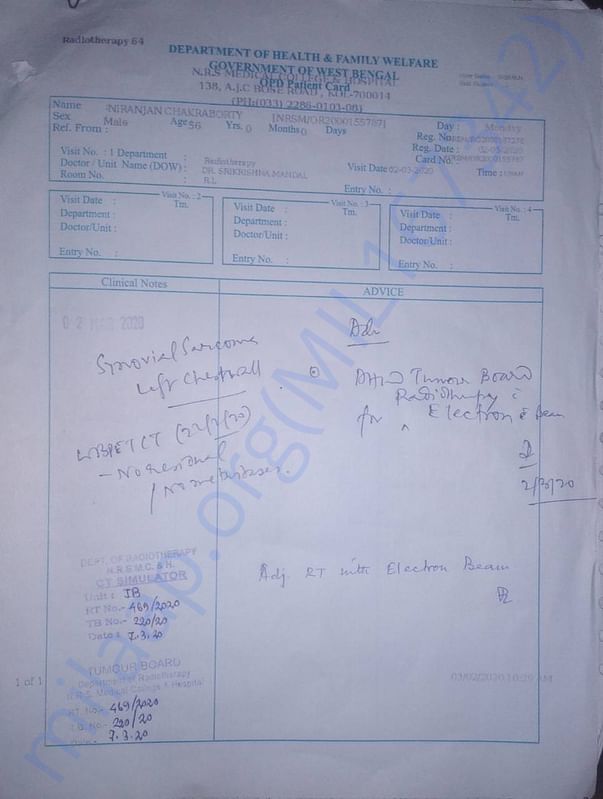 Radiotherapy 64
DEPARTMENT OF HEALTH & FAMILY WELFARE
GOVERNMENT OF WEST BENGAL
N.R.S MEDICAL COLLEGE & HOSPITAL
OPD Patient Card
138, A.J.C BOSE ROAD, KOL-700014
(PH:(033) 2286-0103-08)
Name NIRANJAN CHAKRABORTY [NRSM/OR2000155787] Day : Monday
Sex Male Age 56 Yrs. 0 Months 0 Days Reg. No.
Ref. From : Reg. Date : 02-03-2020
Card No.
Visit No. : 1 Department : Radiotherapy
Doctor / Unit Name (DOW) : DR. SRIKRISHNA MANDAL Visit Date 02-03-2020 Time :
Room No. : R.I. Entry No. :
Visit No. : 2 Visit No. : 3 Visit No. : 4
Visit Date : Tm. Visit Date : Tm. Visit Date : Tm.
Department : Department : Department :
Doctor/Unit : Doctor/Unit : Doctor/Unit :
Entry No. : Entry No. : Entry No. :
Clinical Notes ADVICE
02 MAR 2020
Adv
Synovial Sarcoma
Left Chestwall
Tumour Board
Radiotherapy
for Electron Beam
WBPETCT
- No residual
/ No metastases.
2/3/20
DEPT. OF RADIOTHERAPY
N.R.S.M.C. & H.
CT SIMULATOR
Unit : JB
RT No.- 469/2020
TB No.- 220/20
Date : 7.3.20
Adj. RT with Electron Beam
TUMOUR BOARD
Department of Radiotherapy
N.R.S. Medical College & Hospital
RT. No.- 469/2020
T.B. No.- 220/20
Date:- 7.3.20
1 of 1
03/02/2020 10:29 AM
milaap.org(MIL167342)